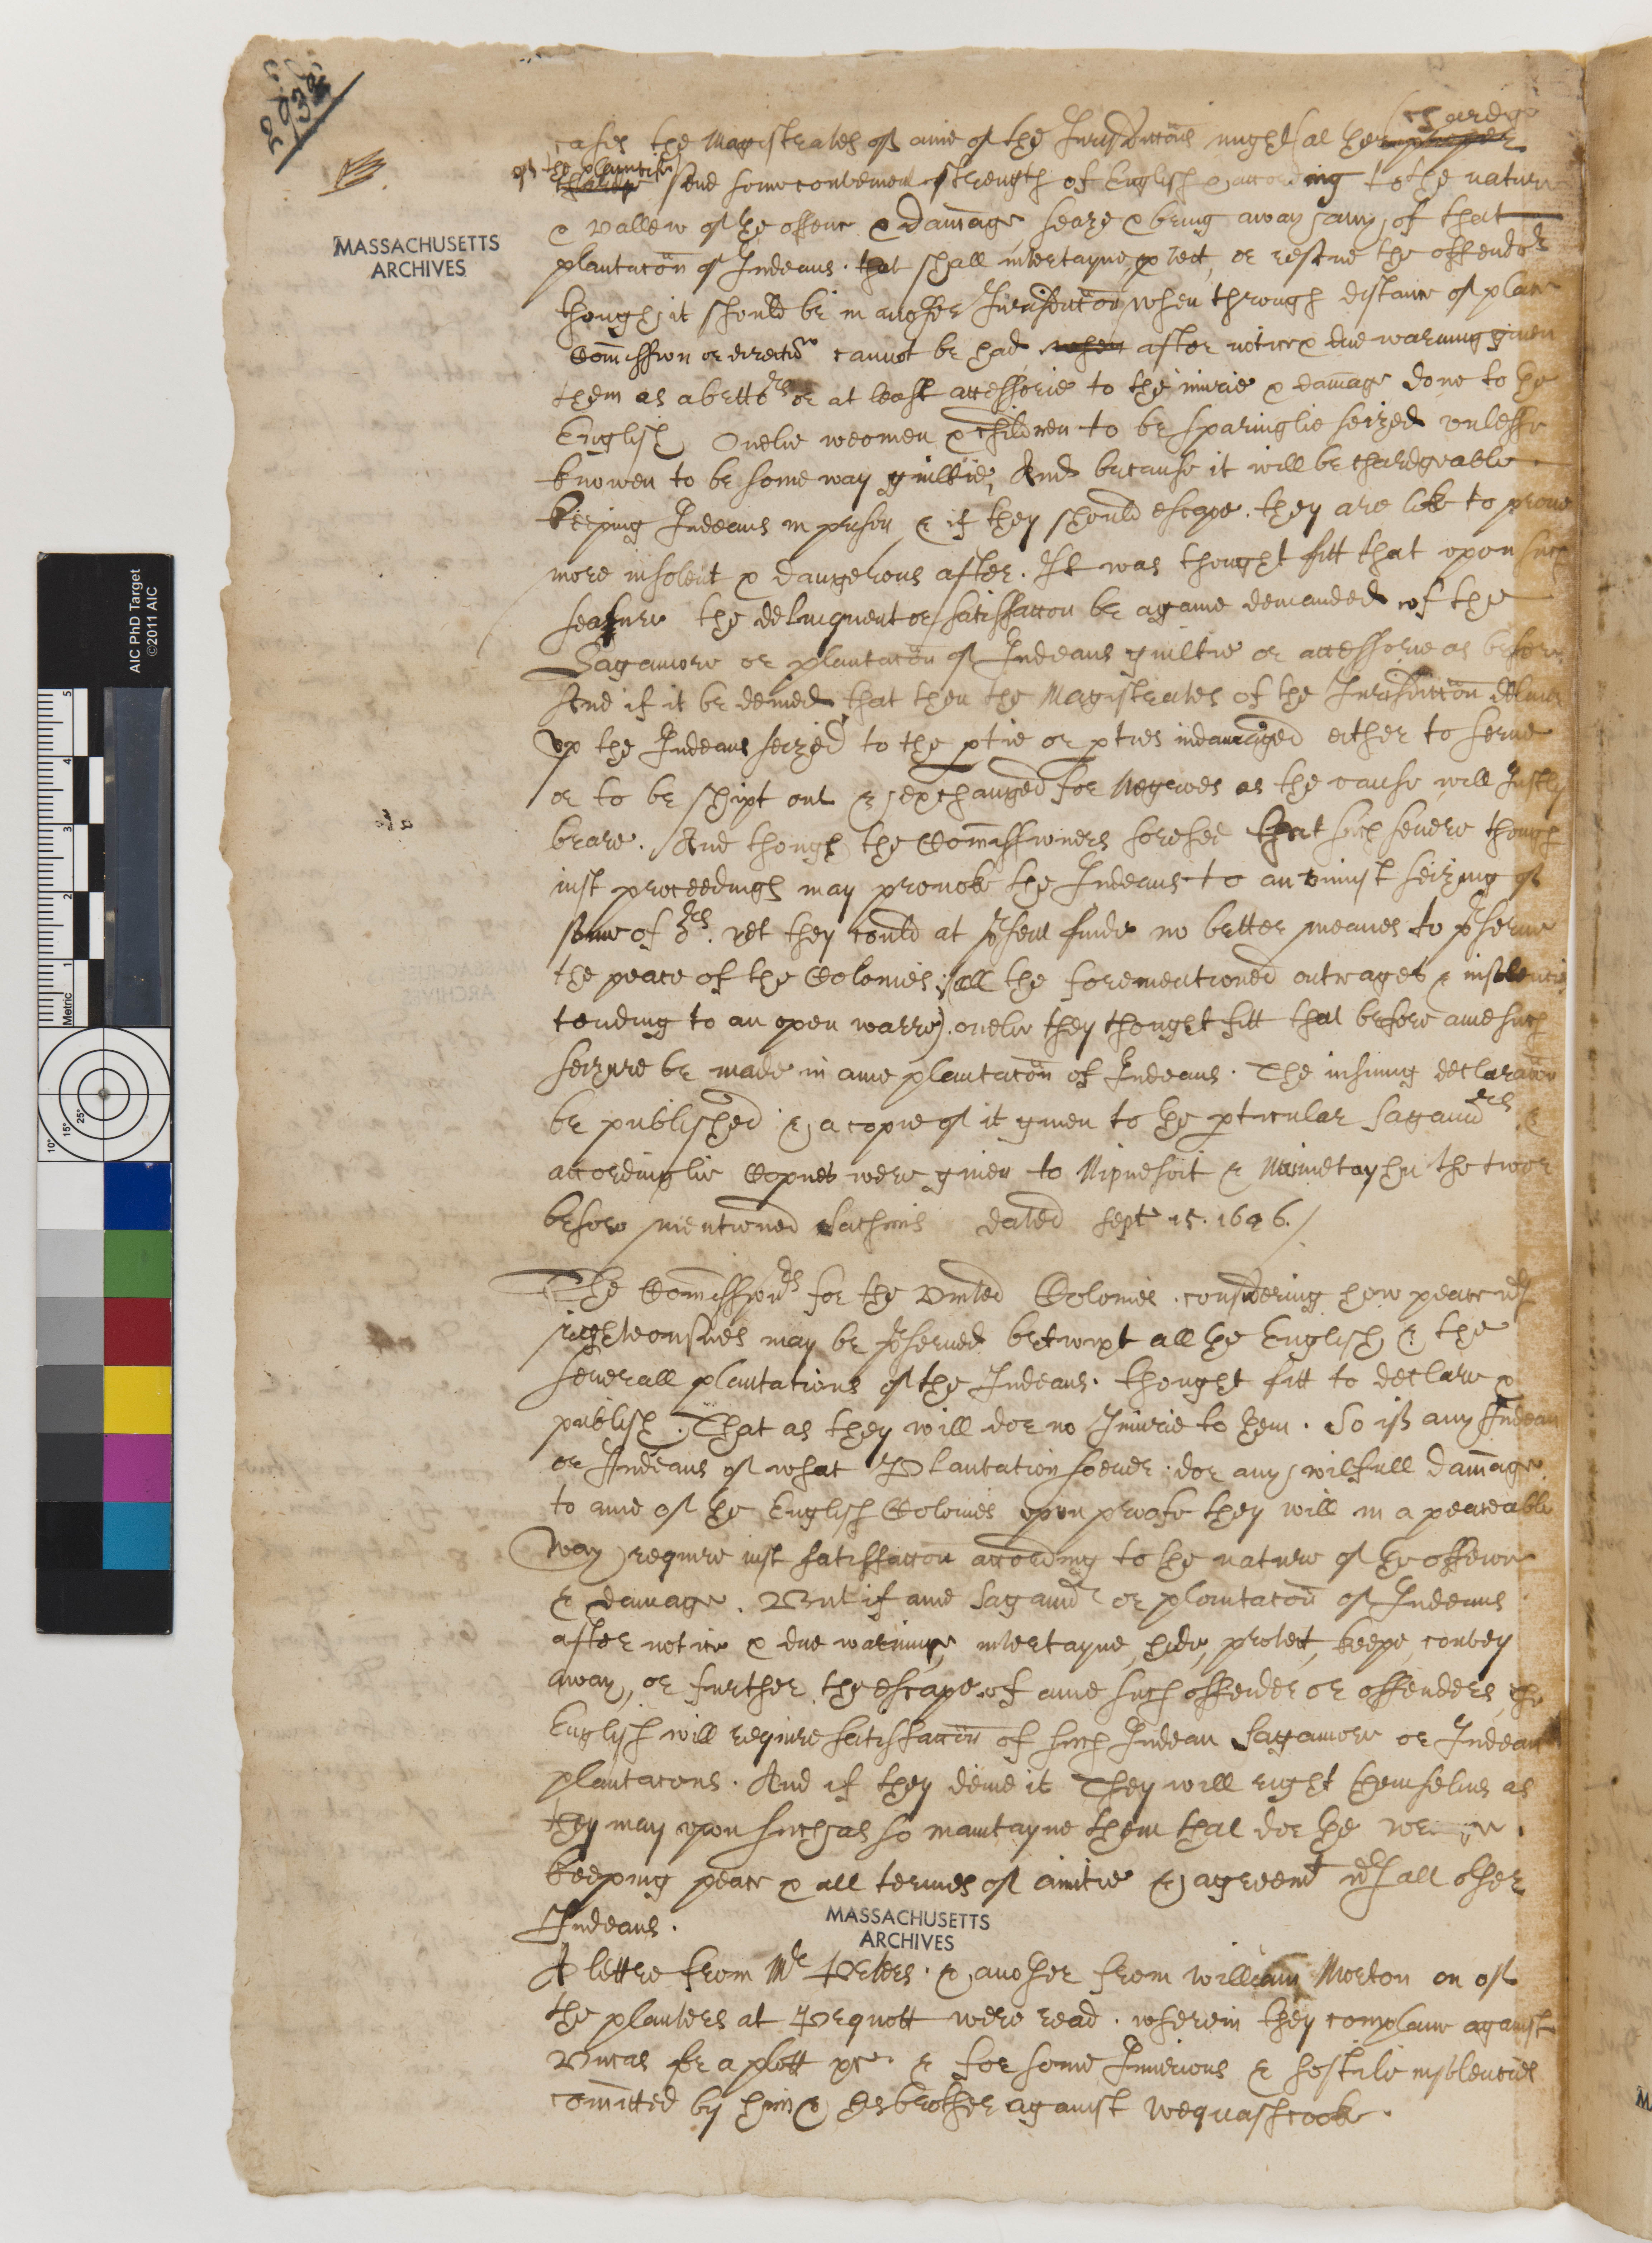 293
cases the Magistrates of anie of the Jurisdiccons might at the chardg
of the plaintiff send some convenient strength of English & according to the nature
MASSACHUSETTS
ARCHIVES
& vallew of the offence & damage, seaze & bring away any of that
plantacon of Indeans that shall intertayne, ptect, or rescue the offendor
though it should be in another Jurisdiccon, when through distance of place
Comission or direction cannot be had after notice & due warning giuen
them as abettors or at least accessorie to the iniurie & damage done to the
English Onelie weomen & children to be sparinglie seized vnlesse
knowen to be some way guiltie, And because it will be chardgeable
keeping Indeans in prison & if they should escape they are like to proue
more insolent & dangerous after. It was thought fitt that vpon such
seasure the delinquent or satisfaccon be againe demanded of the
Sagamore or plantacon of Indeans guiltie or accessorie as before
And if it be denied that then the Magistrates of the Jurisdiccon deliuer
vp the Indeans seized to the ptie or pties indamaged either to serue
or to be shipt out & exchanged for Negroes as the cause will Justly
beare. And though the Comissioners foresee that such seuere though
iust proceedings may prouok the Indeans to an vniust seizing of
some of ors. yet they could at psent finde no better meanes to pserue
the peace of the Colonies; (all the forementioned outrages & insolencies
tending to an open warre). onelie they thought fitt that before anie such
seizure be made in anie plantacon of Indeans. The insuing declaracon
be published & a copie of it giuen to the pticular Sagamors &
accordinglie Copies were giuen to the twoe
before mentioned Sachims dated Sept 15. 1646.
The Comissionrs for the vnited Colonies considering how peace wth
righteousnes may be pserued betwixt all the English & the
seuerall plantations of the Indeans. thought fitt to declare &
publish. That as they will doe no Iniurie to them. So if any Indean
or Indeans of what Plantation soeuer doe any wilfull damage
to anie of the English Colonies vpon proofe they will in a peaceable
way require iust satisfaccon according to the nature of the offence
& damage. But if anie Sagamor or plantacon of Indeans
after notice & due warning, intertayne, hide, protect, keepe, convey
away, or further the escape of anie such offender or offenders, the
English will require satisfaccon of such Indean Sagamore or Indean
plantacons. And if they denie it They will right themselues as
they may vpon such as so maintayne them that doe the
keeping peace & all termes of amitie & agreemt wth all other
Indeans.
MASSACHUSETTS
ARCHIVES
A lettre from Mr Peters. & another from William Morton on of
the planters at Pequott were read. wherein they complaine against
Vncas for a plott &c. & for some Iniurious & hostile insolencies
comitted by him & his brother against wequashcook.
MASSACHUSETTS
ARCHIVES
AIC PhD Target
©2011 AIC
5
4
3
2
1
Metric
10°
15°
25°